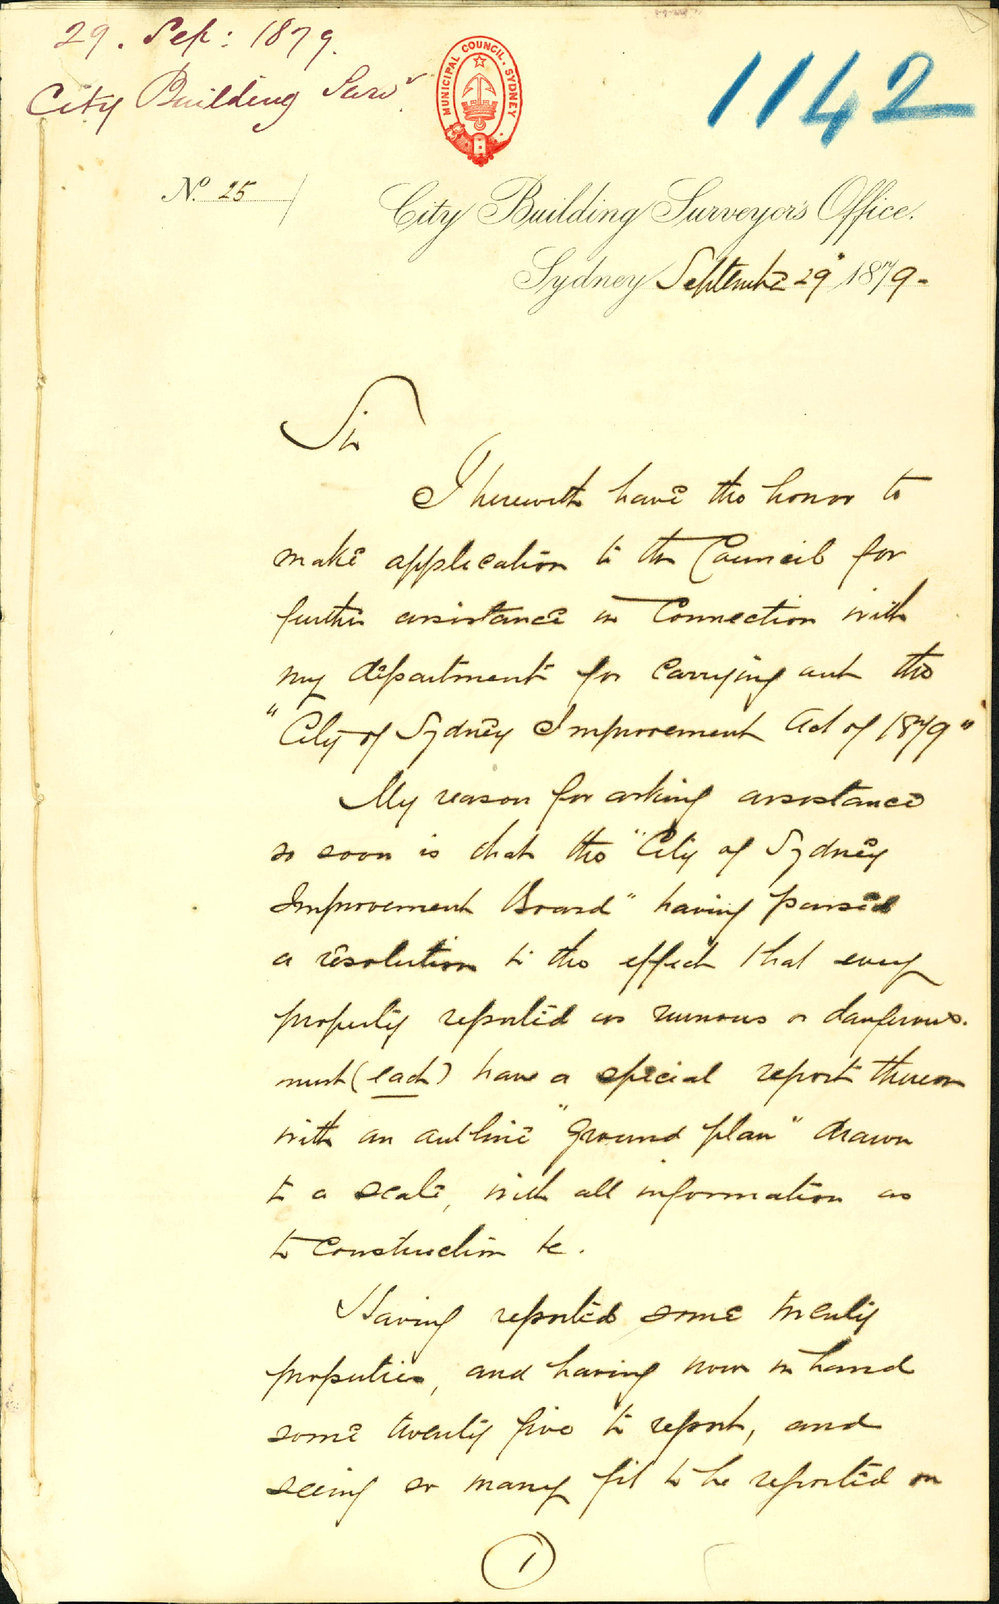 29. Sep: 1879.
City Building Survr
MUNICIPAL COUNCIL. SYDNEY
1142
No. 25
City Building Surveyor's Office.
Sydney September 29th 1879-
Sir
I herewith have the honor to
make application to the Council for
further assistance in connection with
my department for carrying out the
"City of Sydney Improvement Act of 1879"
My reason for asking assistance
so soon is that the "City of Sydney
Improvement Board" having passed
a resolution to the effect that every
property reported as ruinous or dangerous.
must (each) have a special report thereon
with an outline "ground plan" drawn
to a scale, with all information as
to construction &c.
Having reported some twenty
properties, and having now in hand
some twenty five to report, and
seeing so many fit to be reported on
1